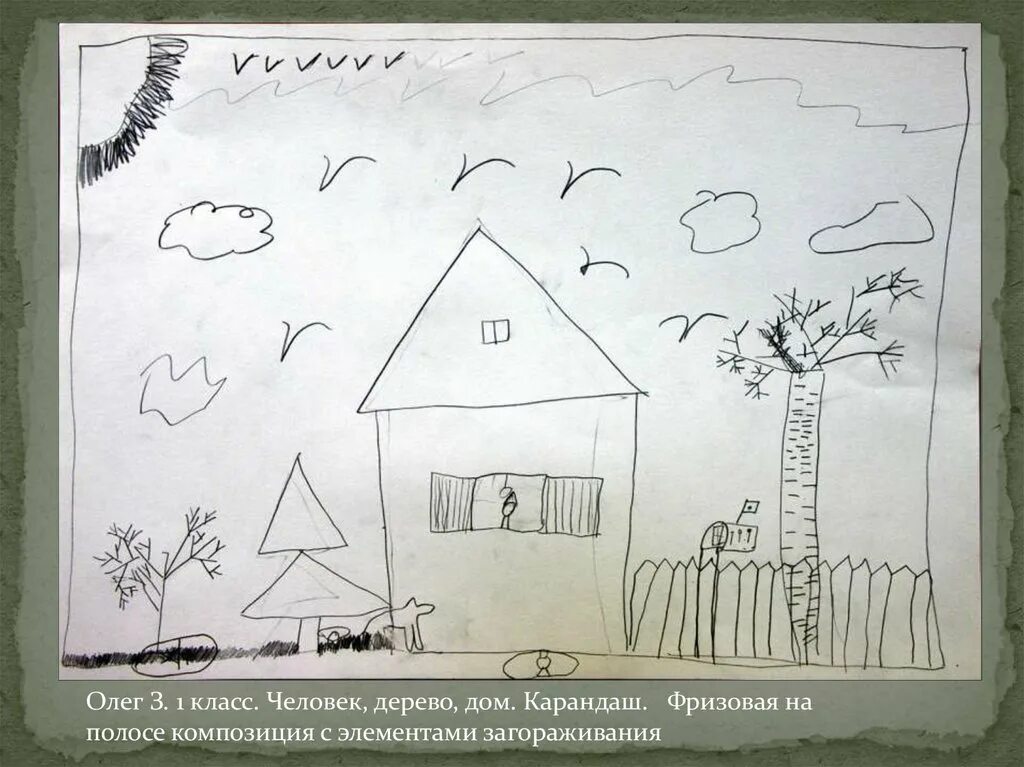 Олег З. 1 класс. Человек, дерево, дом. Карандаш. Фризовая на
полосе композиция с элементами загораживания